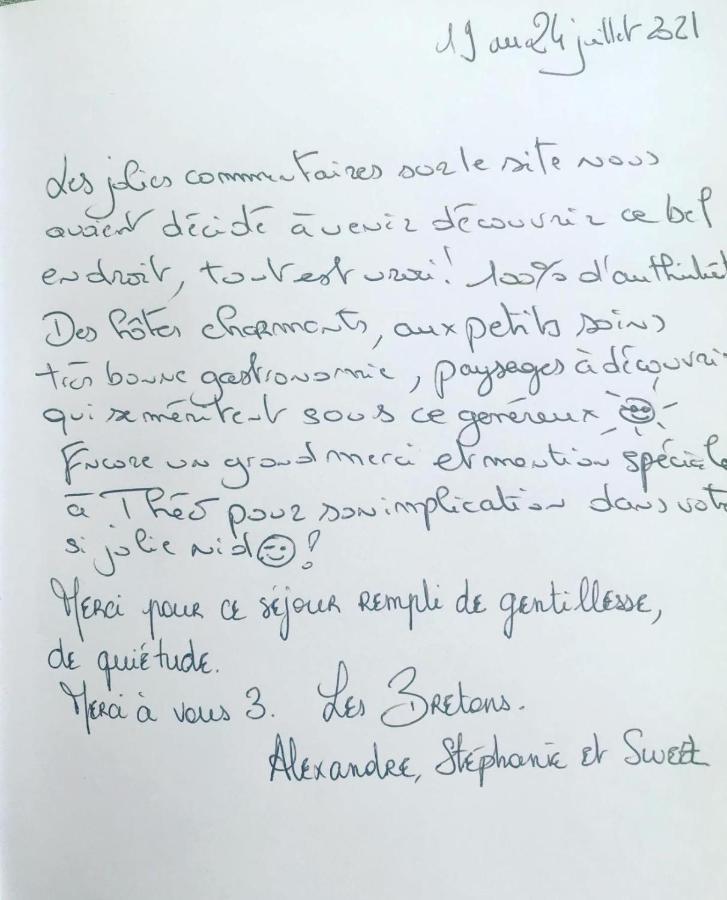 19 au 24 juillet 2021
Les jolies commentaires sur le site nous
avaient décidé à venir découvrir ce bel
endroit, tout est vrai! 100% d'authenticité
Des hôtes charmants, aux petits soins
très bonne gastronomie, paysages à découvrir
qui se méritent sous ce genéreux
Encore un grand merci et mention spéciale
à Théo pour son implication dans votre
si jolie nid !
Merci pour ce séjour rempli de gentillesse,
de quiétude.
Merci à vous 3. Les Bretons.
Alexandre, Stéphanie et Sweet